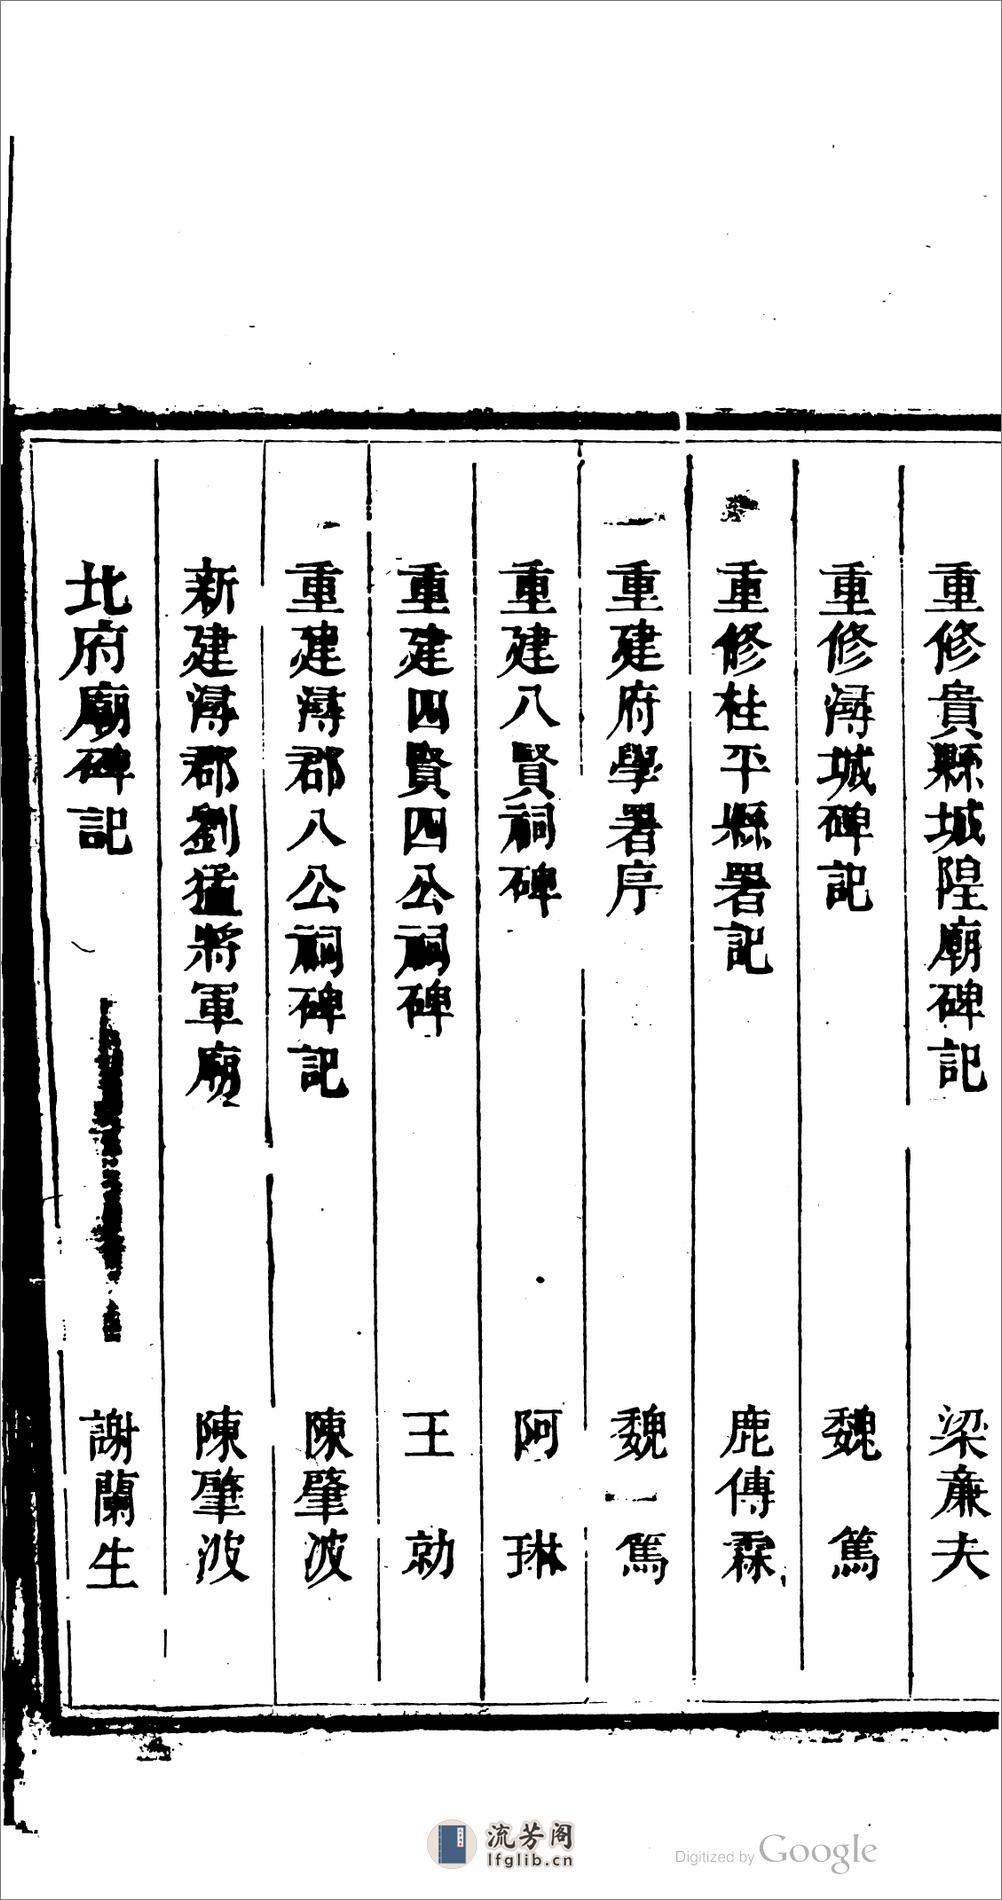 重修貴縣城隍廟碑記 梁廉夫
重修潯城碑記 魏篤
重修桂平縣署記 鹿傳霖
重建府學署序 魏篤
重建八賢祠碑 阿琳
重建四賢四公祠碑 王勍
重建潯郡八公祠碑記 陳肇波
新建潯郡劉猛將軍廟 陳肇波
北府廟碑記 謝蘭生
流芳阁
lfglib.cn
Digitized by Google